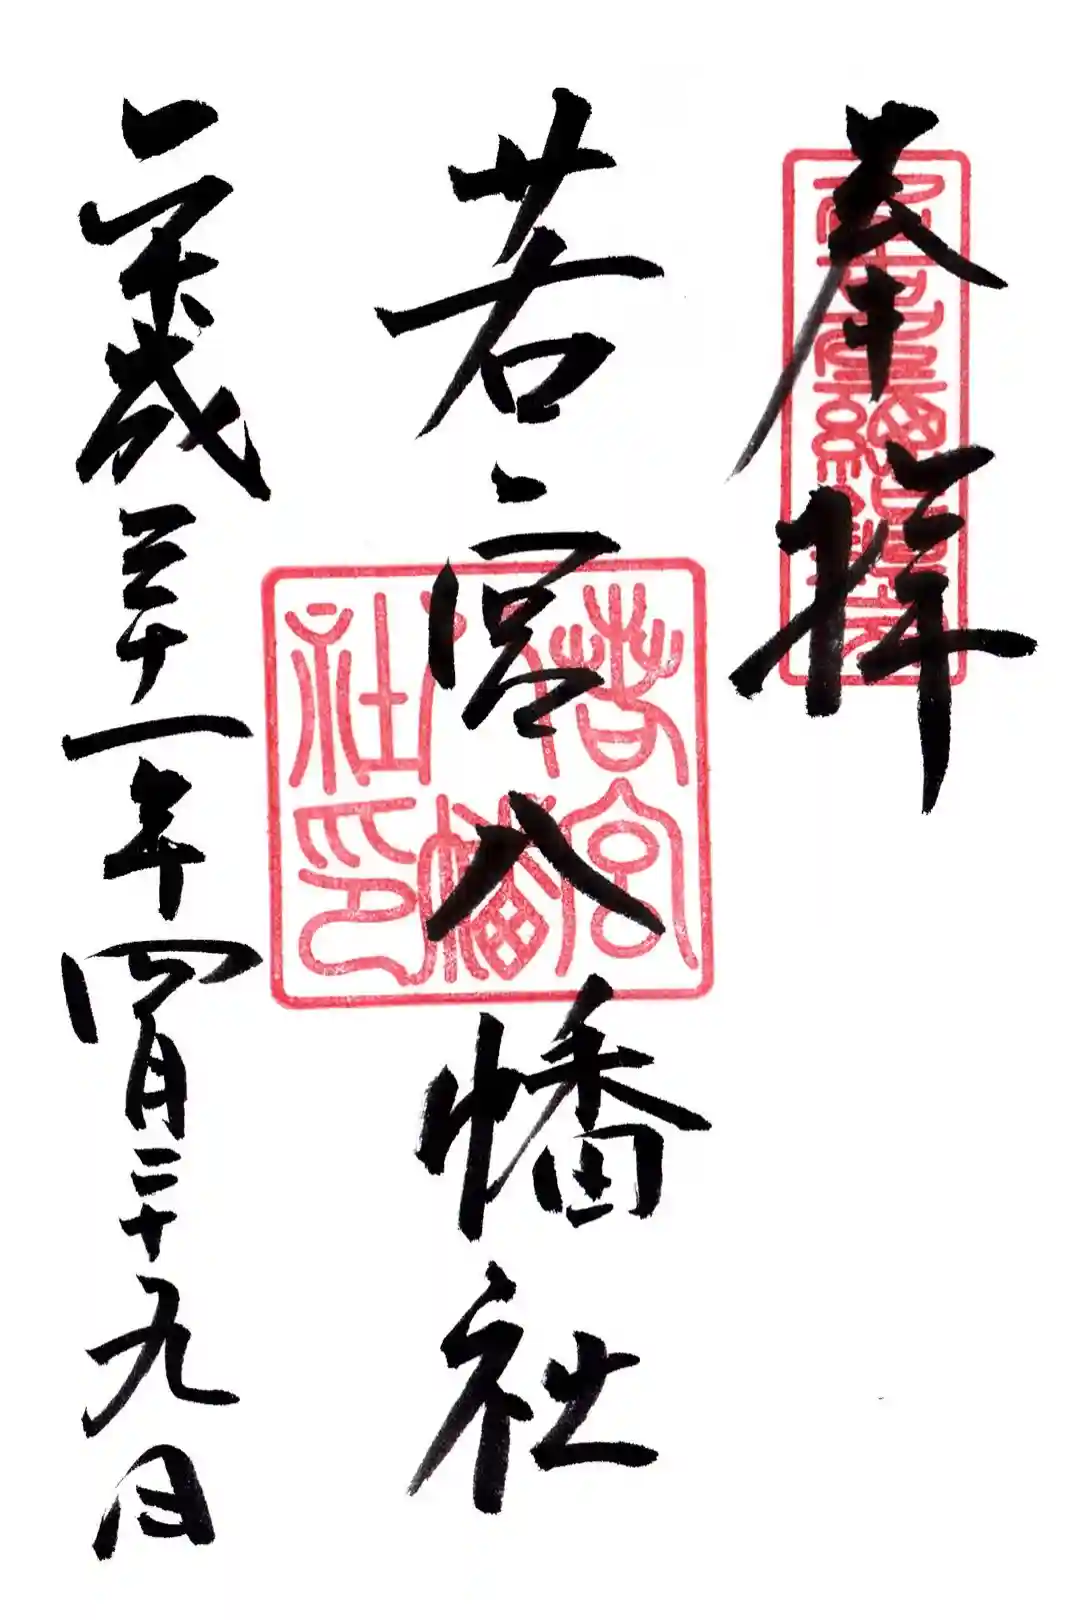 奉拝
若宮八幡社
平成三十一年四月二十九日
若宮八幡社印